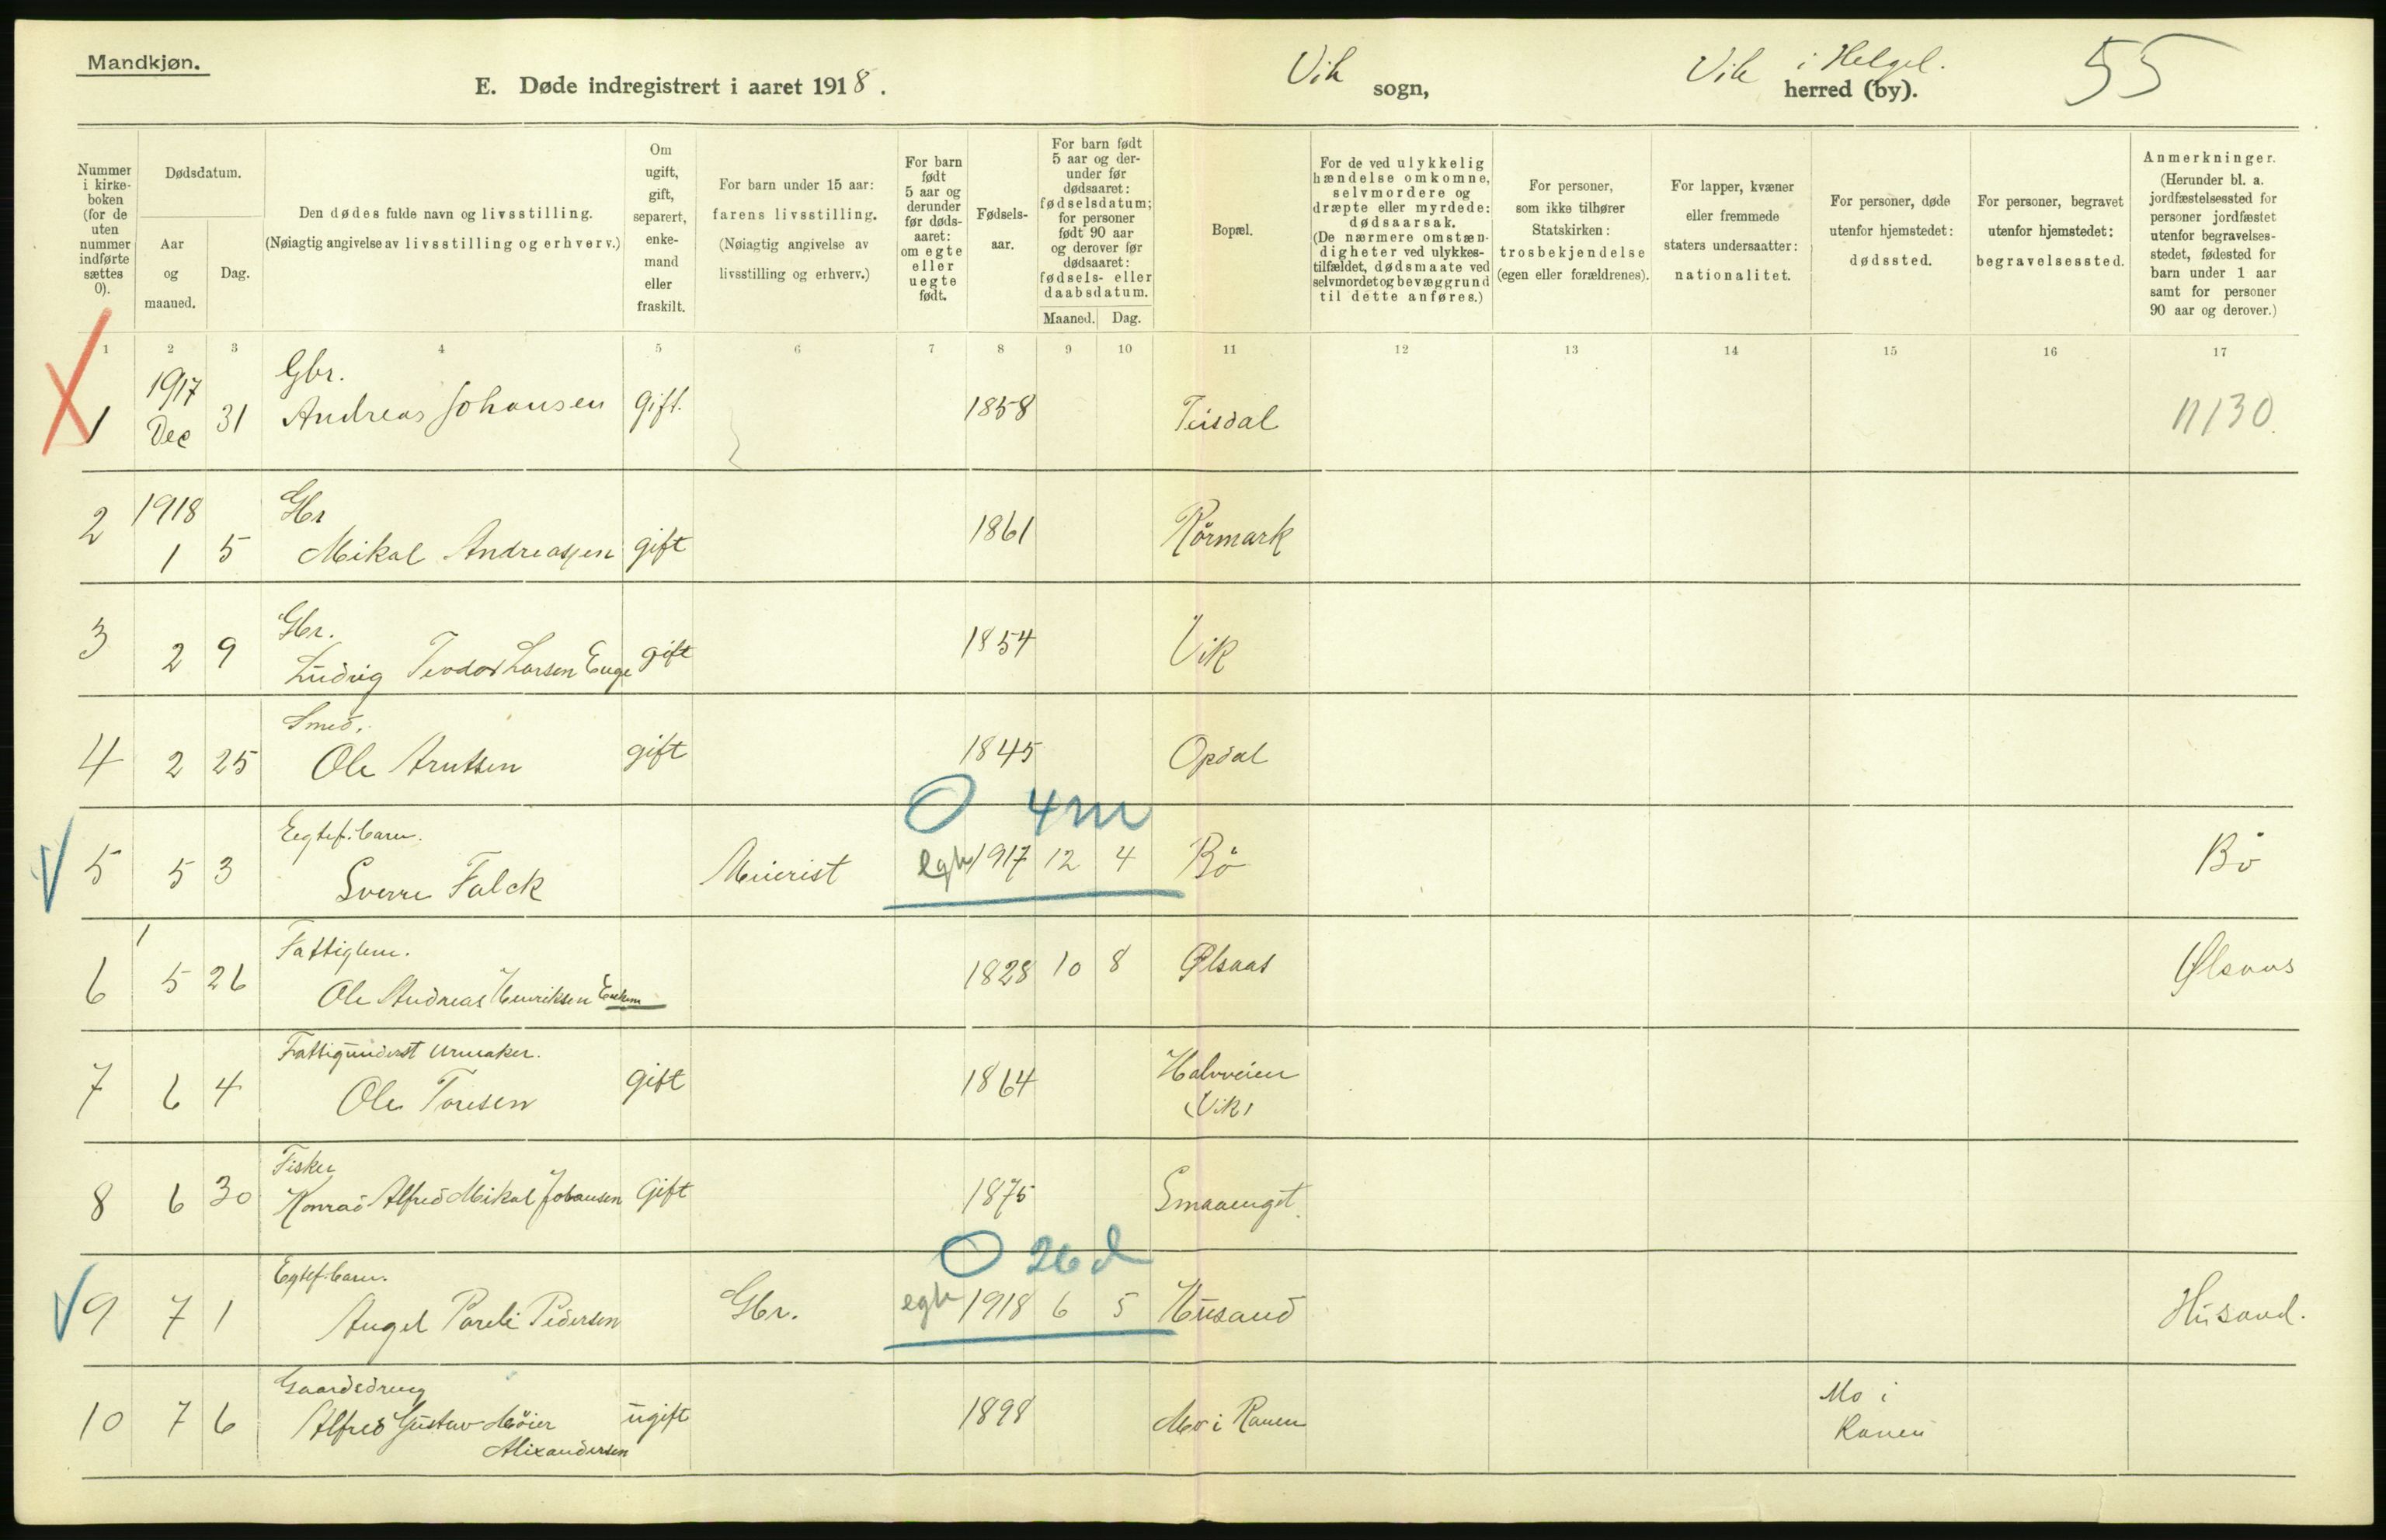 Mandkjøn.
E. Døde indregistrert i aaret 1918.
Vik sogn,
Vik i Helgel. herred (by).
55
Nummer i kirke-boken (for de uten nummer indførte sættes 0).
Dødsdatum.
Aar og maaned.
Dag.
Den dødes fulde navn og livsstilling.
(Nøiagtig angivelse av livsstilling og erhverv.)
Om ugift, gift, separert, enke-mand eller fraskilt.
For barn under 15 aar: farens livsstilling.
(Nøiagtig angivelse av livsstilling og erhverv.)
For barn født 5 aar og derunder før døds-aaret: om egte eller uegte født.
Fødsels-aar.
For barn født 5 aar og der-under før dødsaaret: fødselsdatum; for personer født 90 aar og derover før dødsaaret: fødsels- eller daabsdatum.
Maaned. Dag.
Bopæl.
For de ved ulykkelig hændelse omkomne, selvmordere og dræpte eller myrdede: dødsaarsak.
(De nærmere omstæn-digheter ved ulykkes-tilfældet, dødsmaate ved selvmordet og bevæggrund til dette anføres.)
For personer, som ikke tilhører Statskirken: trosbekjendelse (egen eller forældrenes).
For lapper, kvæner eller fremmede staters undersaatter: nationalitet.
For personer, døde utenfor hjemstedet: dødssted.
For personer, begravet utenfor hjemstedet: begravelsessted.
Anmerkninger.
(Herunder bl. a. jordfæstelsessted for personer jordfæstet utenfor begravelses-stedet, fødested for barn under 1 aar samt for personer 90 aar og derover.)
1 2 3 4 5 6 7 8 9 10 11 12 13 14 15 16 17
1917 Gbr.
1 Dec 31 Andreas Johansen gift. 1858 Teisdal 11/30.
1918 Gbr
2 1 5 Mikal Andreassen gift 1861 Rørmark
Gbr.
3 2 9 Ludvig Teodor Larsen Enge gift 1854 Vik
Smed.
4 2 25 Ole Arntsen gift 1845 Opdal
O 4m
Egtef. barn.
5 5 3 Sverre Falck Meierist egte 1917 12 4 Bø Bø
Fattiglem.
6 5 26 Ole Andreas Henriksen Enkem 1828 10 8 Ølsaas Ølsaas
Fattigunderst Urmaker.
7 6 4 Ole Toresen gift 1864 Halvveien
(Vik)
Fisker
8 6 30 Konrad Alfred Mikal Johansen Gift 1875 Smaaengst.
O 26 d
Egtef. barn.
9 7 1 Angel Pareli Pedersen Gbr. egte 1918 6 5 Husand Husand.
Gaardsdreng
10 7 6 Alfred Gustav Møier ugift 1898 Mo i Ranen Mo i
Alixandersen Ranen